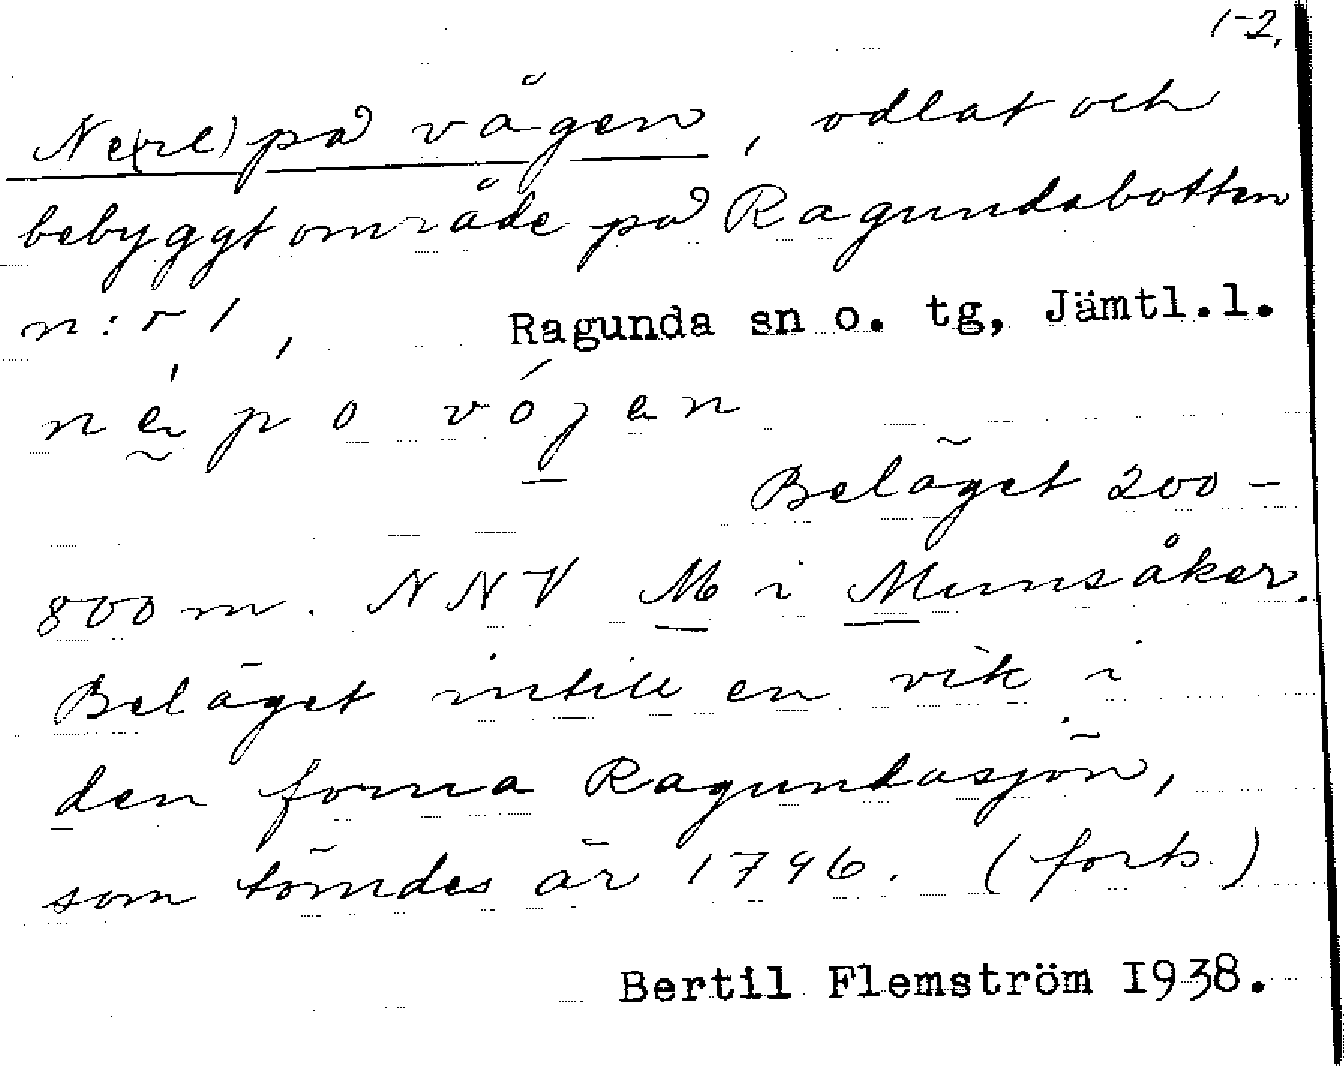 1-2.
Ne(re) på vågen, odlat och
bebyggt område på Ragundabotten
n:r 1, Ragunda sn o. tg, Jämtl.l.
né po vójen
Beläget 200-
800 m. NNV M i Munsåker.
Beläget intill en vik i
den forna Ragundasjön,
som tömdes år 1796. (forts.)
Bertil Flemström 1938.